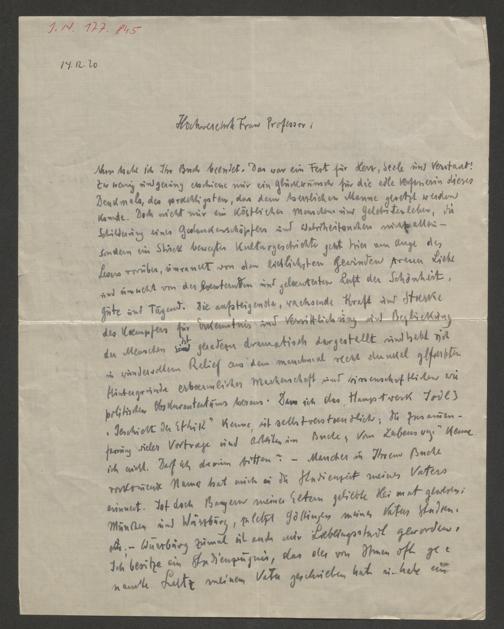 I.N. 177.845
14.12.20
Hochverehrte Frau Professor!
Nun habe ich Ihr Buch beendet. Das war ein Fest für Herz, Seele und Verstand!
Zu wenig und gering erschiene mir ein Glückwunsch für die edle Verfasserin dieses
Denkmals, des prächtigsten, das dem herrlichen Manne gesetzt werden
konnte. Doch nicht nur ein köstliches Menschen und Gelehrtenleben, die
Schilderung eines Gedankenschöpfers und Wahrheitsuchers
sondern ein Stück bewegter Kulturgeschichte geht hier am Auge des
Lesers vorüber, umrankt von den lieblichsten Gewinden Liebe
und umweht von der und geläuterten Luft der Schönheit,
Güte und Tugend. Die aufsteigende, wachsende Kraft und Stärke
des Kampfes für Erkenntnis und Versittlichung und Beglückung
der Menschen ist geradezu dramatisch dargestellt und hebt sich
in wundervollem Relief aus dem manchmal recht dunkel
Hintergrunde erbärmlicher Machenschaft und wissenschaftlichen wie
politischen Obskurantentums heraus. Dass ich das Hauptwerk Jodls
"Geschichte der Ethik" kenne, ist selbstverständlich; die Zusammen-
fassung vieler Vorträge und Arbeiten im Buche "Vom Lebenswege" kenne
ich nicht. Darf ich darum bitten? – Mancher in Ihrem Buche
vorkommende Name hat mich an die Studienzeit meines Vaters
erinnert. Ist doch Bayern meiner Eltern geliebte Heimat gewesen;
München und Würzburg, zuletzt Göttingen meines Vaters Studien-
orte. – Würzburg zumal ist auch mir Lieblingsstadt geworden.
Ich besitze ein Studienzeugnis, das der von Ihnen oft ge-
nannte meinem Vater geschrieben hat u. habe ein